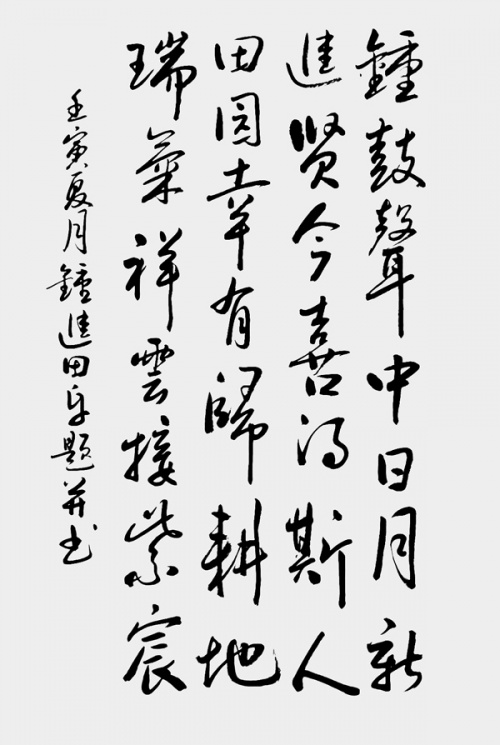 鍾鼓聲中日月新
進賢今喜得斯人
田園幸有歸耕地
瑞氣祥雲接紫宸
壬寅夏月鍾進田自題并书